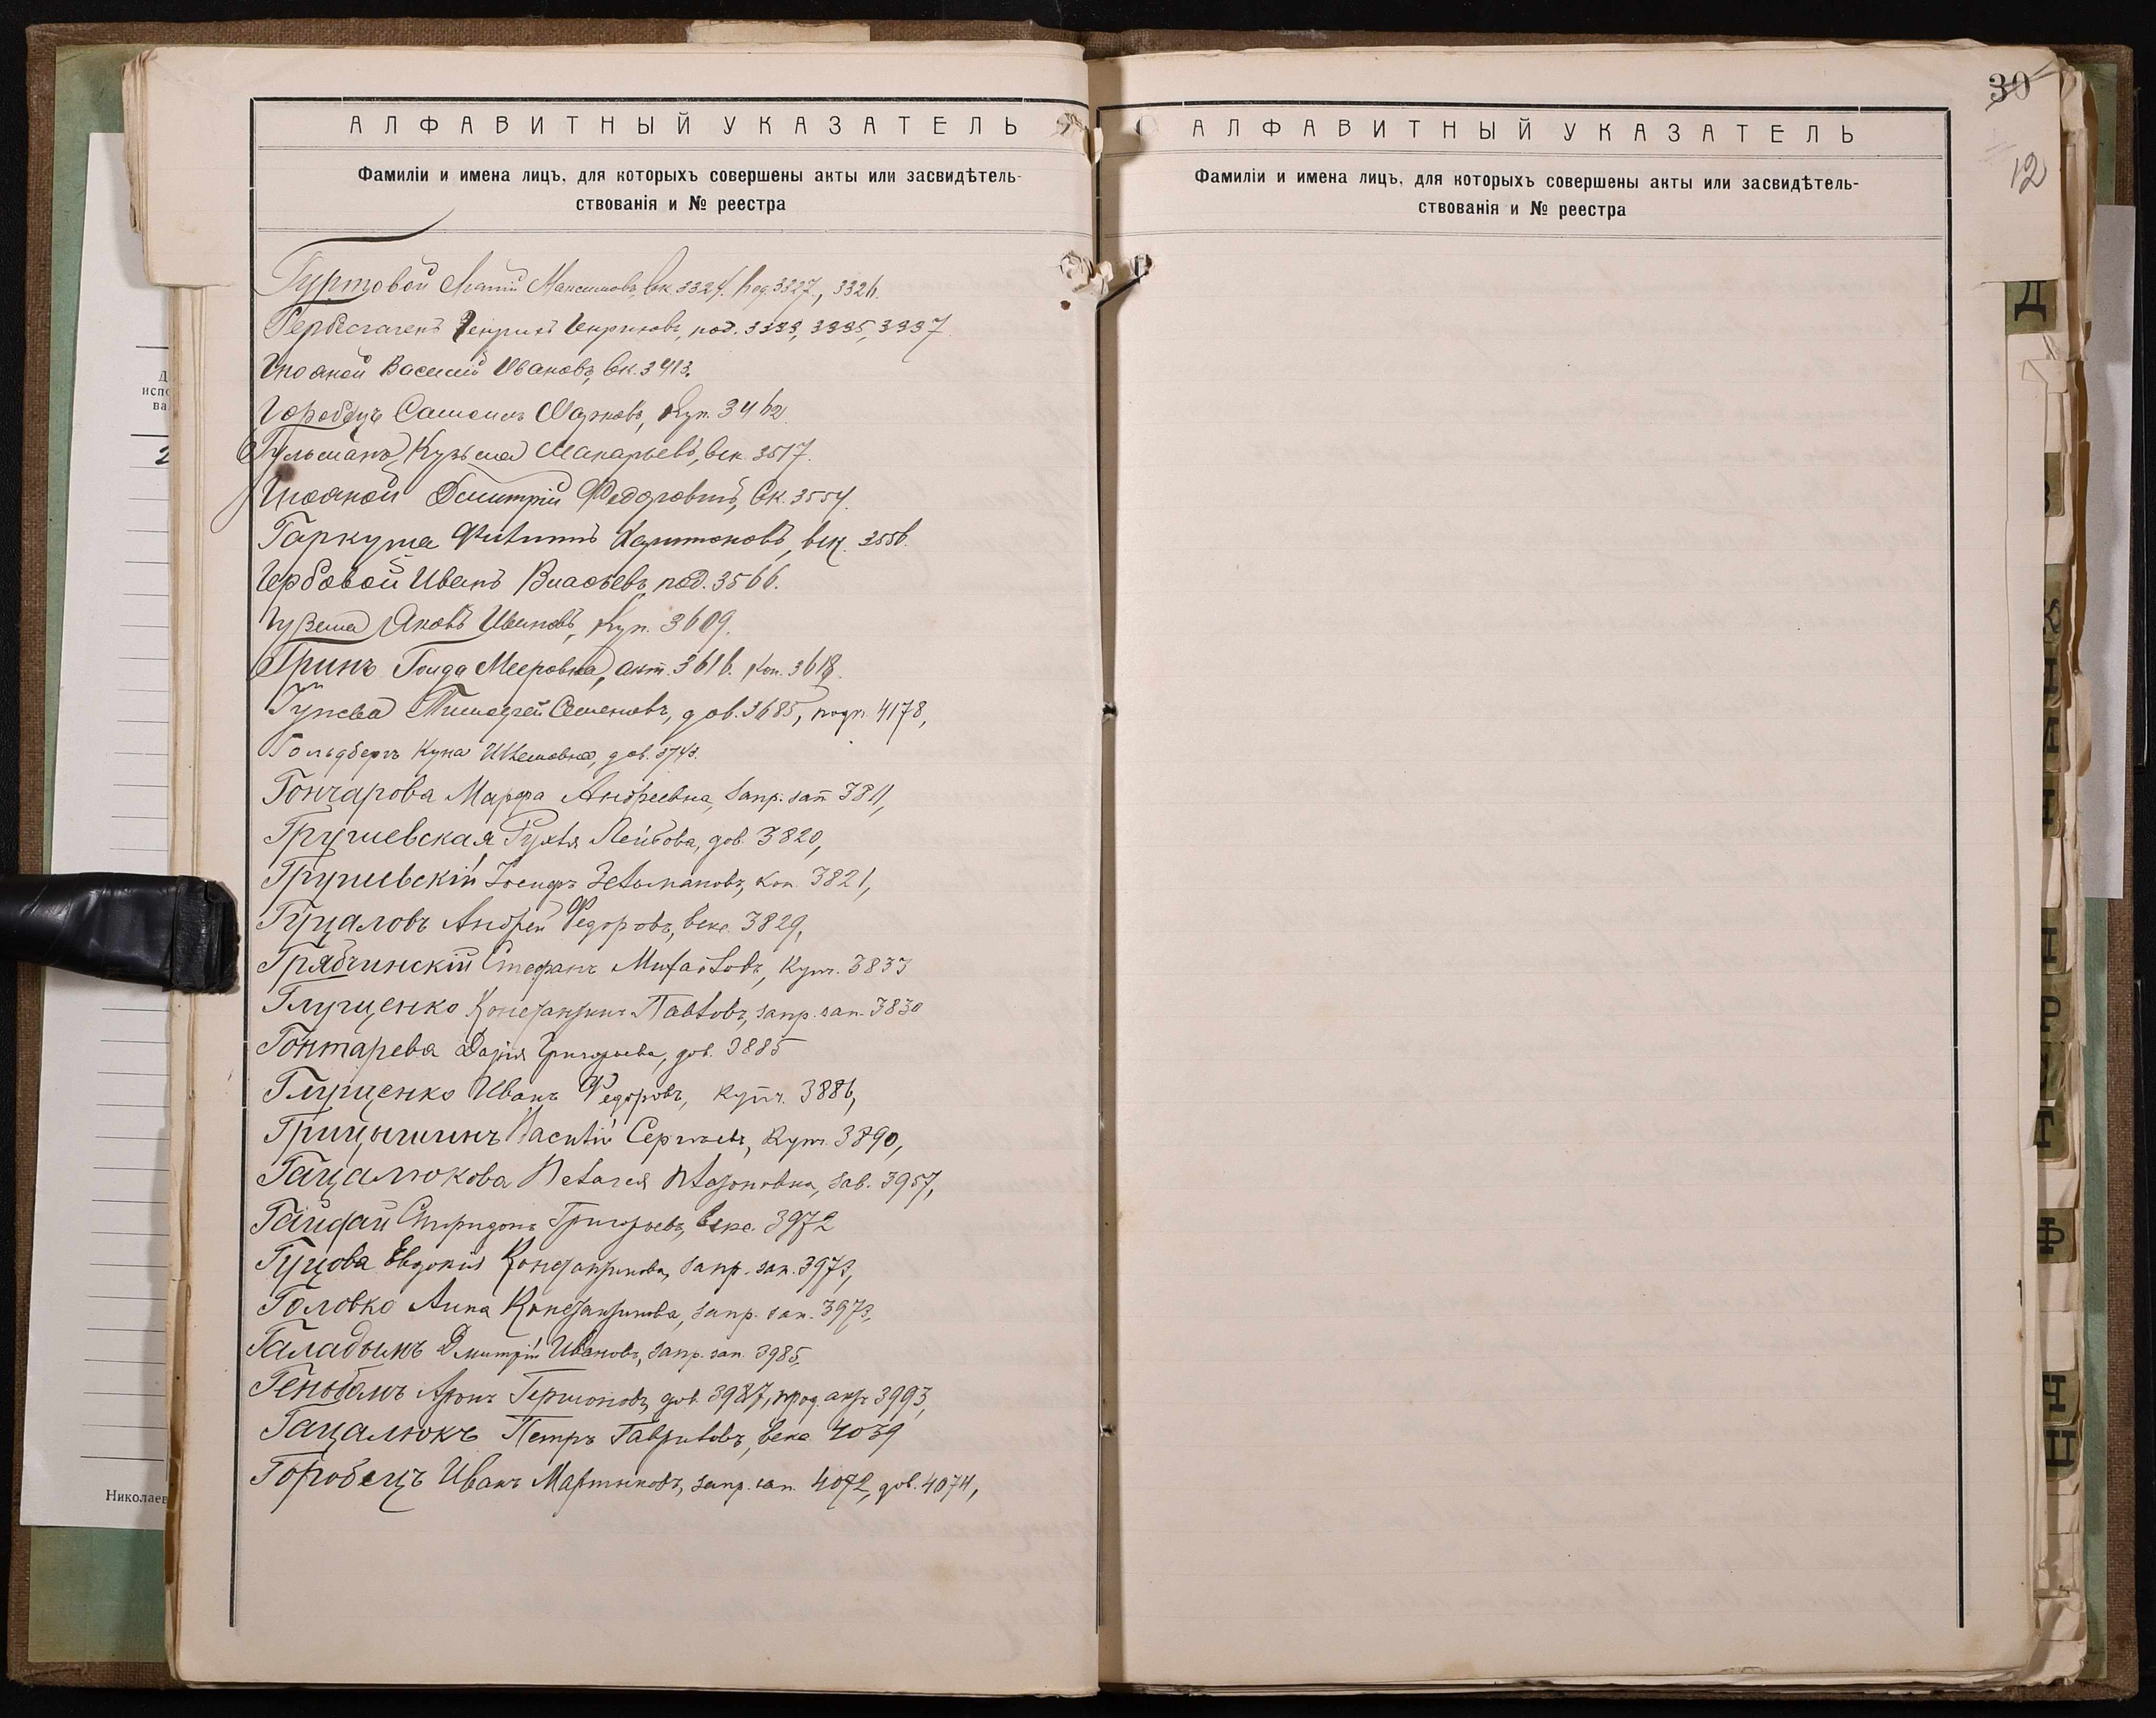 АЛФАВИТНЫЙ УКАЗАТЕЛЬ
Фамиліи и имена лицъ, для которыхъ совершены акты или засвидѣтель-
ствованія и № реестра
Гуртовой Максимовъ, вк 3324. под. 3327, 3326.
Генрихъ Генриховъ, под. 3333, 3335, 3337
Василій Ивановъ, вк. 3413.
Горобецъ Самоилъ Марковъ, куп. 3462
Гульманъ Кузьма Макарьевъ, век. 3517.
Дмитрій Федоровичъ, вк. 3554.
Гаркуша Филиппъ Харитоновъ, век. 3556.
Гербовой Иванъ Власьевъ, под. 3566.
Яковъ Ивановъ, куп. 3609.
Гринъ Голда Мееровна, акт. 3616. коп. 3618.
Тимофей Семеновъ, дов. 3685, подп. 4178,
Гольдбергъ Куна дов. 3743.
Гончарова Марфа Андреевна, запр. зап 3811,
Грушевская Рухля Лейбова, дов. 3820,
Грушевскій Іосифъ Зельмановъ, коп. 3821,
Гуцаловъ Андрей Федоровъ, векс. 3829,
Грябчинскій Стефанъ Михайловъ, купч. 3833
Глущенко Константинъ Павловъ, запр. зап. 3830
Гонтарева Дарія Григорьева, дов. 3885
Глущенко Иванъ Федоровъ, купч. 3886,
Грицышинъ Василій Сергѣевъ, купч. 3890,
Гацалюкова Пелагея Платоновна, зав. 3957,
Гайдай Спиридонъ Григорьевъ, векс. 3972
Гуцова Евдокія Константинова, запр. зап. 3973,
Головко Анна Константинова, запр. зап. 3973,
Галадымъ Дмитрій Ивановъ, запр. зап. 3985,
Аронъ Гершоновъ, дов. 3987, прод. акт 3993,
Гацалюкъ Петръ Гавриловъ, векс. 4039
Горобецъ Иванъ Мартыновъ, запр. зап. 4072, дов. 4074,
Николаев
30
12
АЛФАВИТНЫЙ УКАЗАТЕЛЬ
Фамиліи и имена лицъ, для которыхъ совершены акты или засвидѣтель-
ствованія и № реестра
Д
К
Р
Т
Ф